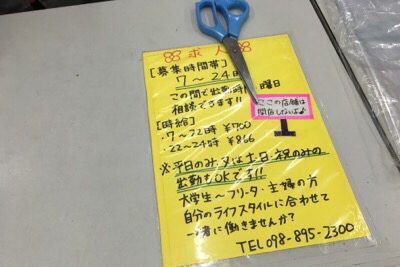 求人
[募集時間帯]
7～24時
この間で出勤時間 曜日
相談できます!!
ここの店舗は
閉店しないよ♪
[時給]
・7～22時 ¥700
・22～24時 ¥866
※平日のみ又は土・日・祝のみの
出勤もOKです!!
大学生～フリータ・主婦の方
自分のライフスタイルに合わせて
一緒に働きませんか?
TEL 098-895-2300